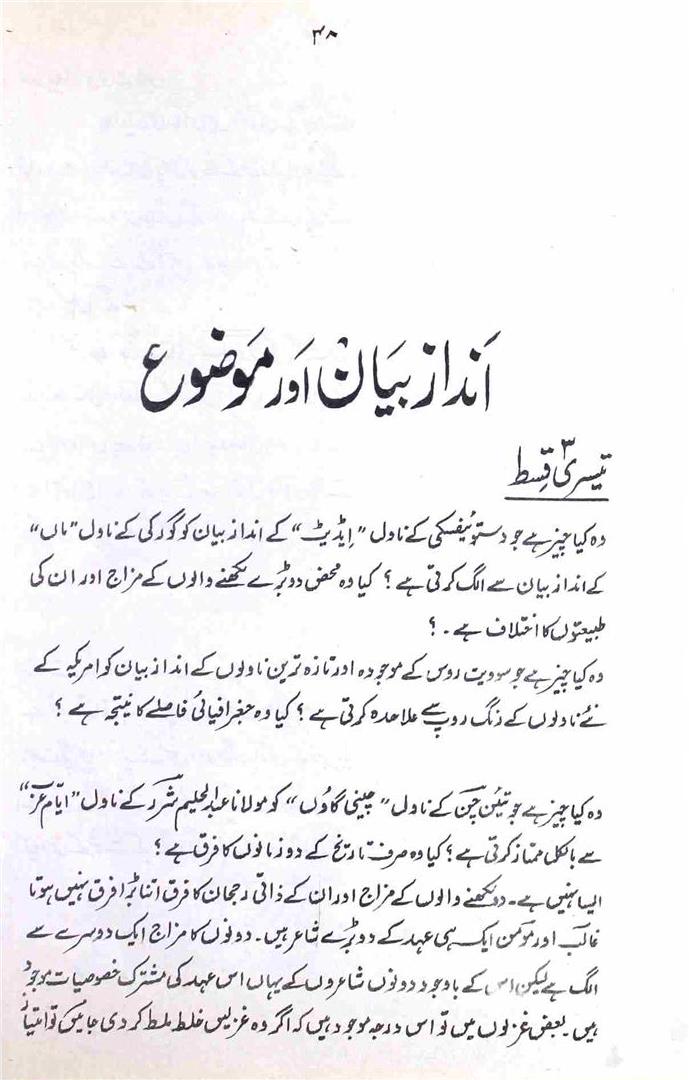 ۳۸
اَنداز بیَان اَور مَوضُوع
تیسری ۳ قِسط
وہ کیا چیز ہے جو دستوئیفسکی کے ناول "اِیڈیٹ" کے انداز بیان کو گورکی کے ناول "ماں"
کے انداز بیان سے الگ کرتی ہے ؟ کیا وہ محض دو بڑے لکھنے والوں کے مزاج اور ان کی
طبیعتوں کا اختلاف ہے ۔ ؟
وہ کیا چیز ہے جو سوویت روس کے موجودہ اور تازہ ترین ناولوں کے انداز بیان کو امریکہ کے
نئے ناولوں کے رنگ روپ سے علاحدہ کرتی ہے ؟ کیا وہ جغرافیائی فاصلے کا نیتجہ ہے ؟
وہ کیا چیز ہے جو تیئن چن کے ناول "چینی گاؤں" کو مولانا عبدالحلیم شرر کے ناول "ایام عرب"
سے بالکل ممتاز کرتی ہے ؟ کیا وہ صرف تاریخ کے دو زمانوں کا فرق ہے ؟
ایسا نہیں ہے۔ دو لکھنے والوں کے مزاج اور ان کے ذاتی رجحان کا فرق اتنا بڑا فرق نہیں ہوتا
غالب اور مومن ایک ہی عہد کے دو بڑے شاعر ہیں۔ دونوں کا مزاج ایک دوسرے سے
الگ ہے لیکن اس کے باوجود دونوں شاعروں کے یہاں اس عہد کی مشترک خصوصیات موجود
ہیں۔ بعض غزلوں میں تو اس درجہ موجود ہیں کہ اگر وہ غزلیں خلط ملط کر دی جائیں تو امتیاز